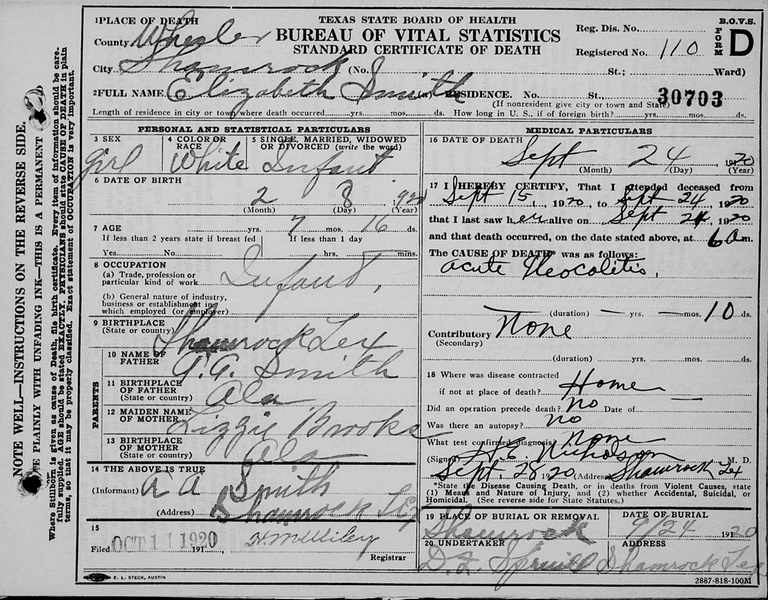 1 PLACE OF DEATH
TEXAS STATE BOARD OF HEALTH
BUREAU OF VITAL STATISTICS
STANDARD CERTIFICATE OF DEATH
Reg. Dis. No.
B.O.V.S.
FORM D
County Wheeler
Registered No. 110
City Shamrock (No. St.; Ward)
2 FULL NAME Elizabeth Smith RESIDENCE. No. St., 30703
(If nonresident give city or town and State)
Length of residence in city or town where death occurred yrs. mos. ds. How long in U. S., if of foreign birth? yrs. mos. ds.
PERSONAL AND STATISTICAL PARTICULARS
3 SEX Girl
4 COLOR OR RACE White
5 SINGLE, MARRIED, WIDOWED OR DIVORCED (write the word) Infant
6 DATE OF BIRTH
2 8 1920
(Month) (Day) (Year)
7 AGE yrs. 7 mos. 16 ds.
If less than 2 years state if breast fed If less than 1 day
Yes No hrs. min.
8 OCCUPATION
(a) Trade, profession or particular kind of work Infant,
(b) General nature of industry, business or establishment in which employed (or employer)
9 BIRTHPLACE
(State or country) Shamrock Tex
PARENTS
10 NAME OF FATHER A. A. Smith
11 BIRTHPLACE OF FATHER
(State or country) Ala
12 MAIDEN NAME OF MOTHER Lizzie Brooks
13 BIRTHPLACE OF MOTHER
(State or country) Ala
14 THE ABOVE IS TRUE
(Informant) A A Smith
(Address) Shamrock Tex
15
Filed OCT 11 1920 191
Registrar
MEDICAL PARTICULARS
16 DATE OF DEATH
Sept 24 1920
(Month) (Day) (Year)
17 I HEREBY CERTIFY, That I attended deceased from
Sept 15, 1920, to Sept 24, 1920
that I last saw her alive on Sept 24, 1920
and that death occurred, on the date stated above, at 6 a m.
The CAUSE OF DEATH was as follows:
Acute Ileocolitis,
(duration) yrs. mos. 10 ds.
Contributory None
(Secondary)
(duration) yrs. mos. ds.
18 Where was disease contracted
if not at place of death? Home
Did an operation precede death? No Date of
Was there an autopsy? No
What test confirmed diagnosis? None
(Signed) H. E. Nicholson M. D.
Sept 28 1920 (Address) Shamrock Tex
*State the Disease Causing Death, or in deaths from Violent Causes, state
(1) Means and Nature of Injury, and (2) whether Accidental, Suicidal, or
Homicidal. (See reverse side for State Statutes.)
19 PLACE OF BURIAL OR REMOVAL DATE OF BURIAL
Shamrock 9/24 1920
20 UNDERTAKER ADDRESS
Shamrock Tex
E. L. STECK, AUSTIN
2887-818-100M
NOTE WELL—INSTRUCTIONS ON THE REVERSE SIDE.
PLAINLY WITH UNFADING INK—THIS IS A PERMANENT
Where Stillborn is given as cause of Death, file birth certificate. Every item of information should be care-
fully supplied. AGE should be stated EXACTLY. PHYSICIANS should state CAUSE OF DEATH in plain
terms, so that it may be properly classified. Exact statement of OCCUPATION is very important.